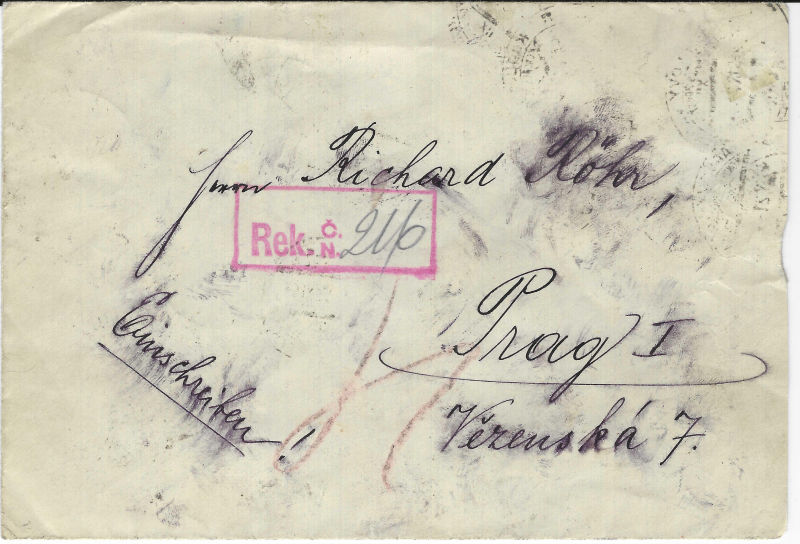 Herrn Richard Röhr,
Rek. Č. N. 216
Prag I
Vězenská 7.
Einschreiben!